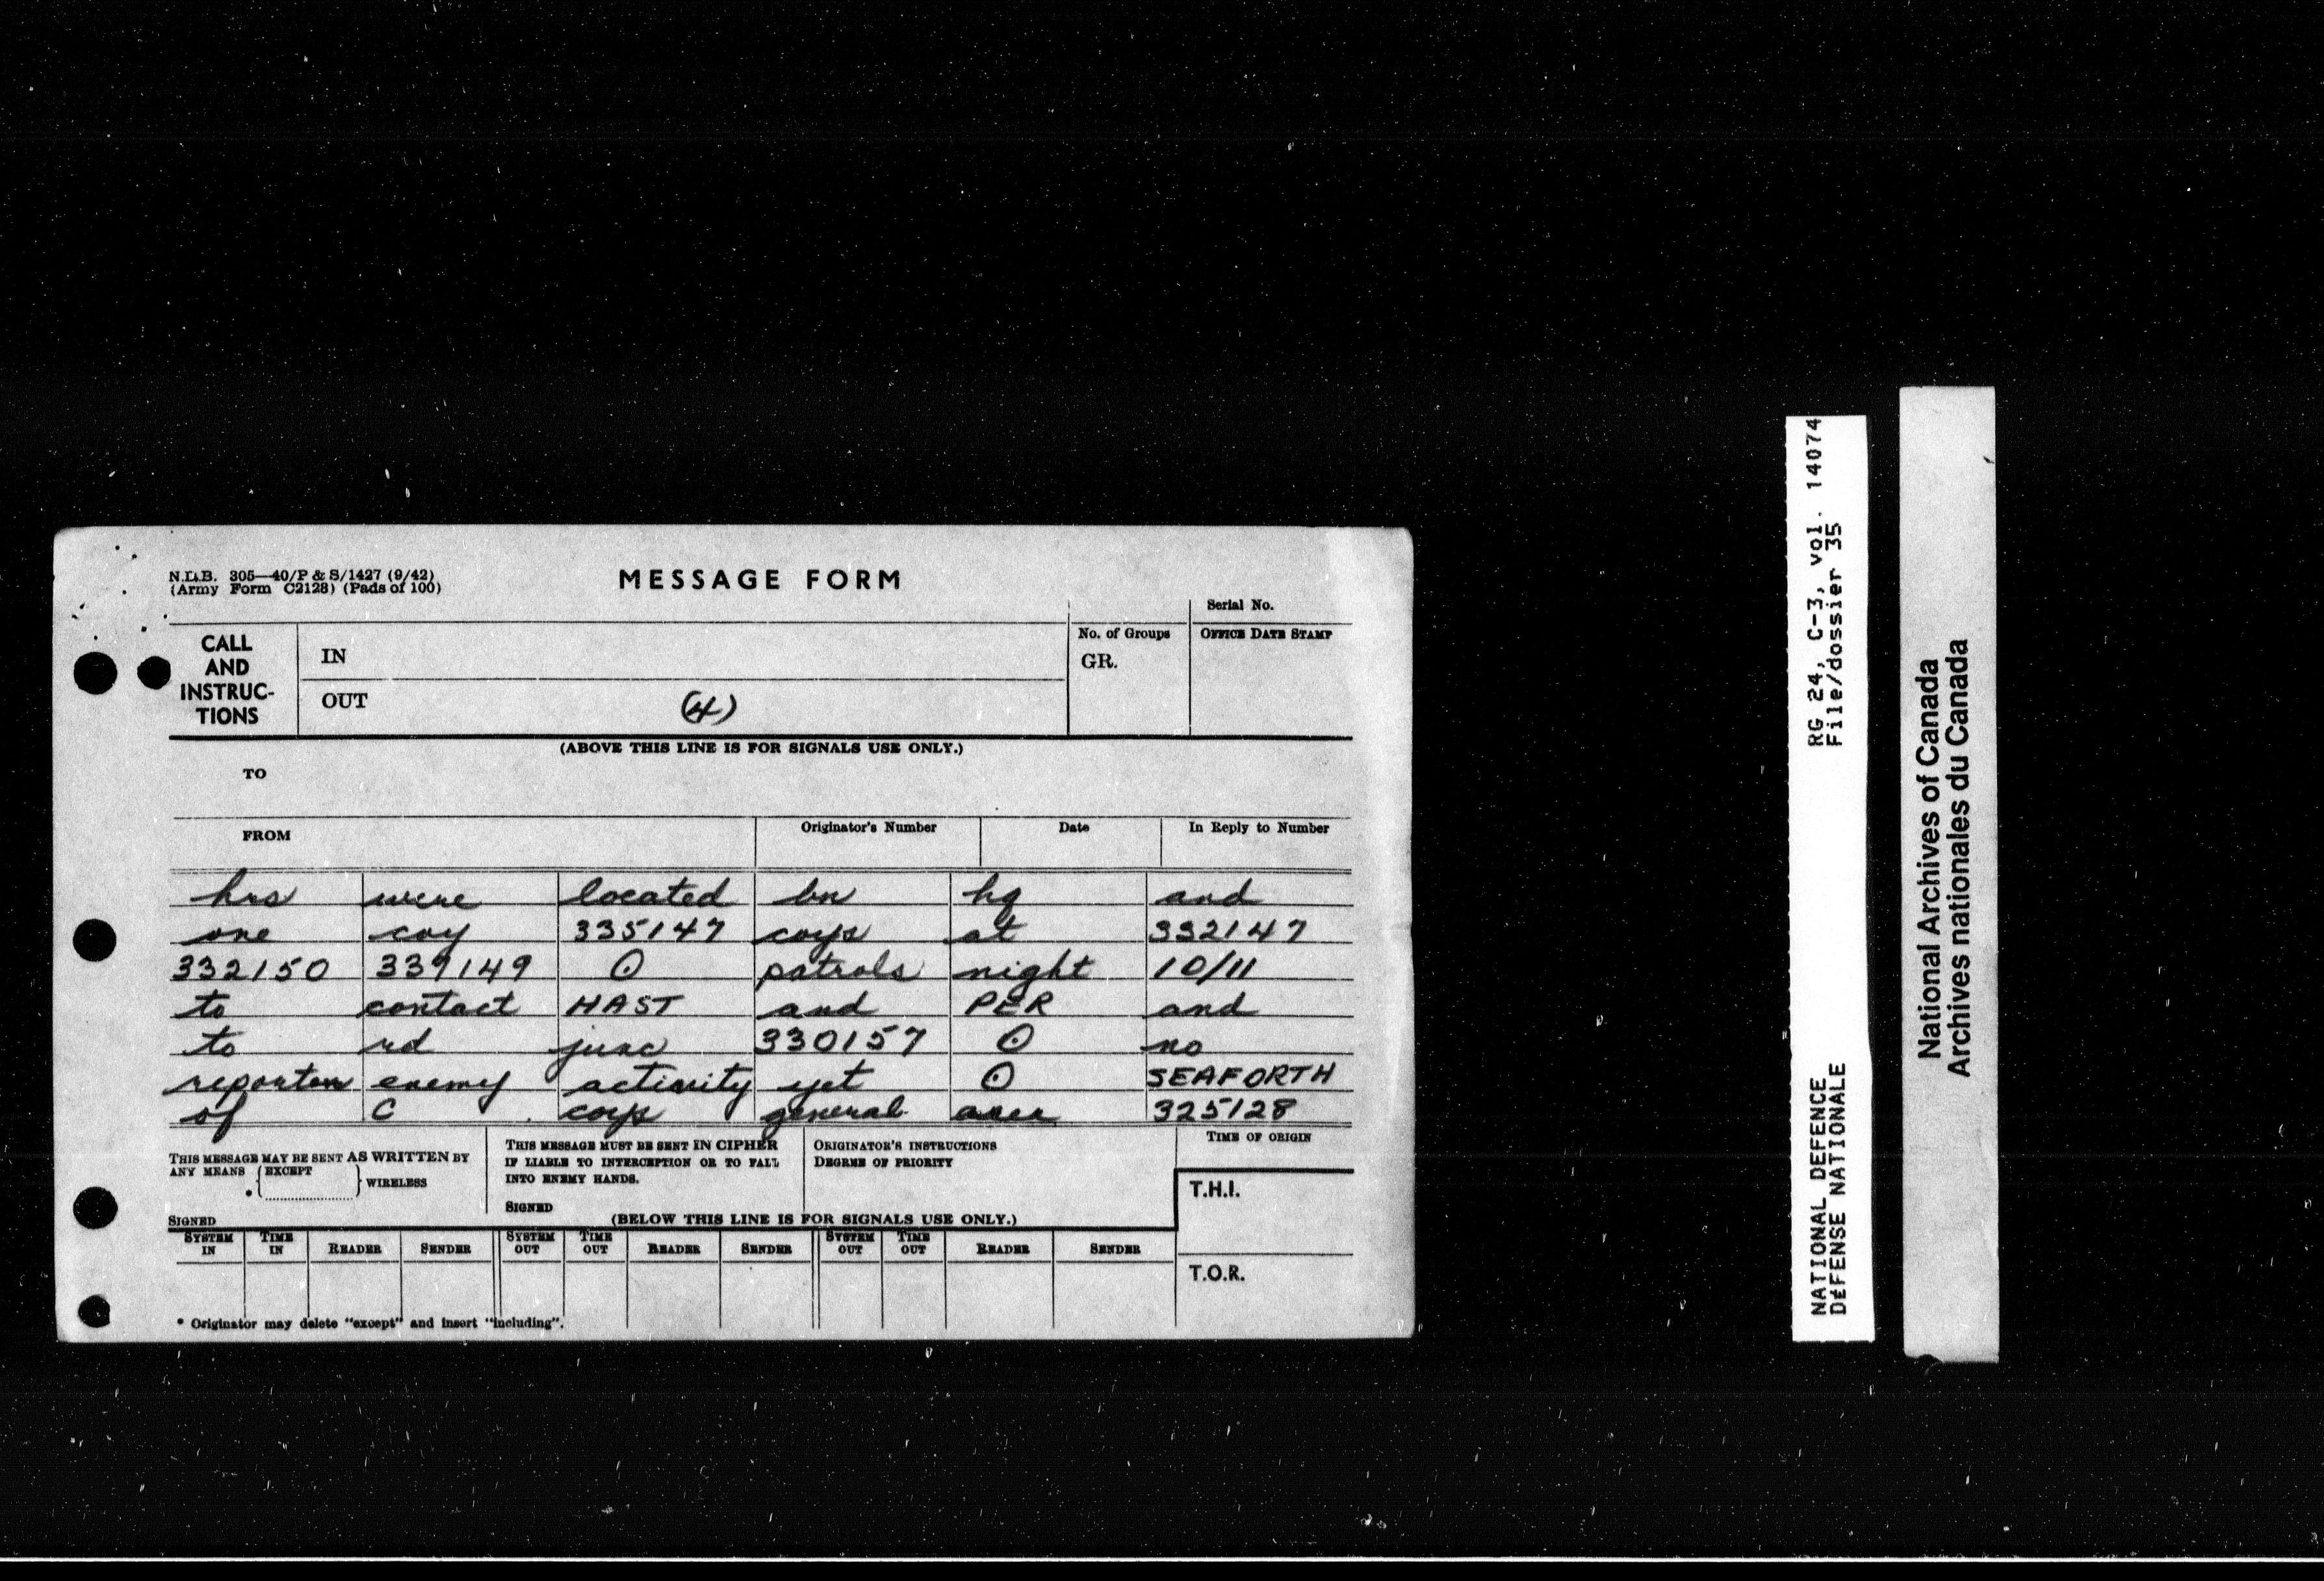 N.D.B. 305—40/P & S/1427 (9/42)
(Army Form C2128) (Pads of 100)
MESSAGE FORM
Serial No.
CALL AND INSTRUC- TIONS
IN
No. of Groups
GR.
OFFICE DATE STAMP
OUT (4)
(ABOVE THIS LINE IS FOR SIGNALS USE ONLY.)
TO
FROM
Originator's Number
Date
In Reply to Number
hrs were located bn hq and
one coy 335147 coys at 332147
332150 339149 ⊙ patrols night 10/11
to contact HAST and PER and
to rd junc 330157 ⊙ no
report on enemy activity yet ⊙ SEAFORTH
of C coys general area 325128
THIS MESSAGE MAY BE SENT AS WRITTEN BY
ANY MEANS { EXCEPT
* { .................... } WIRELESS
SIGNED
THIS MESSAGE MUST BE SENT IN CIPHER
IF LIABLE TO INTERCEPTION OR TO FALL
INTO ENEMY HANDS.
SIGNED
ORIGINATOR'S INSTRUCTIONS
DEGREE OF PRIORITY
TIME OF ORIGIN
T.H.I.
(BELOW THIS LINE IS FOR SIGNALS USE ONLY.)
SYSTEM IN TIME IN READER SENDER SYSTEM OUT TIME OUT READER SENDER SYSTEM OUT TIME OUT READER SENDER
T.O.R.
* Originator may delete "except" and insert "including".
NATIONAL DEFENCE RG 24, C-3, vol. 14074
DÉFENSE NATIONALE File/dossier 35
National Archives of Canada
Archives nationales du Canada